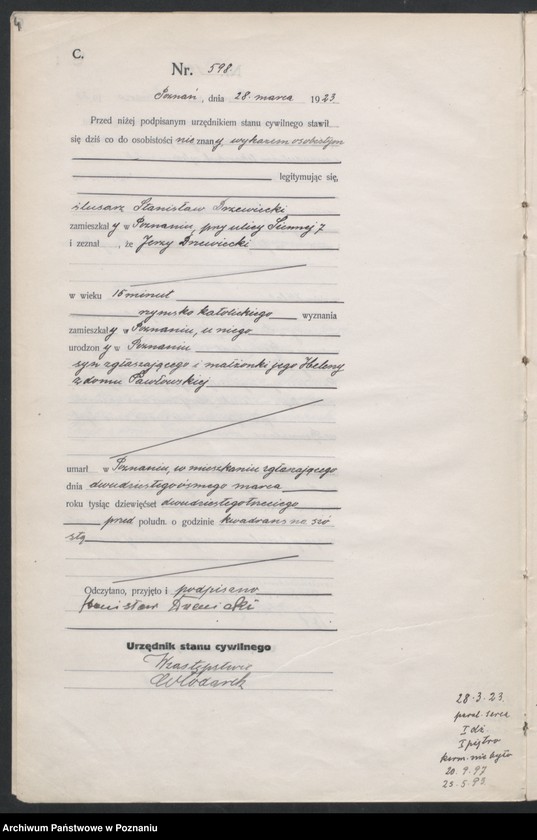 4
C.
Nr. 598.
Poznań, dnia 28. marca 1923
Przed niżej podpisanym urzędnikiem stanu cywilnego stawił
się dziś co do osobistości nieznany wykazem osobistym
legitymując się,
ślusarz Stanisław Drzewiecki
zamieszkały w Poznaniu, przy ulicy Siennej 7
i zeznał, że Jerzy Drzewiecki
w wieku 15 minut
rzymsko katolickiego wyznania
zamieszkały w Poznaniu, u niego
urodzony w Poznaniu
syn zgłaszającego i małżonki jego Heleny
z domu Pawłowskiej
umarł w Poznaniu, w mieszkaniu zgłaszającego
dnia dwudziestegoósmego marca
roku tysiąc dziewięćset dwudziestegotrzeciego
przed połudn. o godzinie kwadrans na szó
stą
Odczytano, przyjęto i podpisano
Stanisław Drzewiecki
Urzędnik stanu cywilnego
W zastępstwie
Włodarek
28.3.23.
paral. serca
I dz.
I piętro
karm. nie było
20.9.97
25.5.92
Archiwum Państwowe w Poznaniu